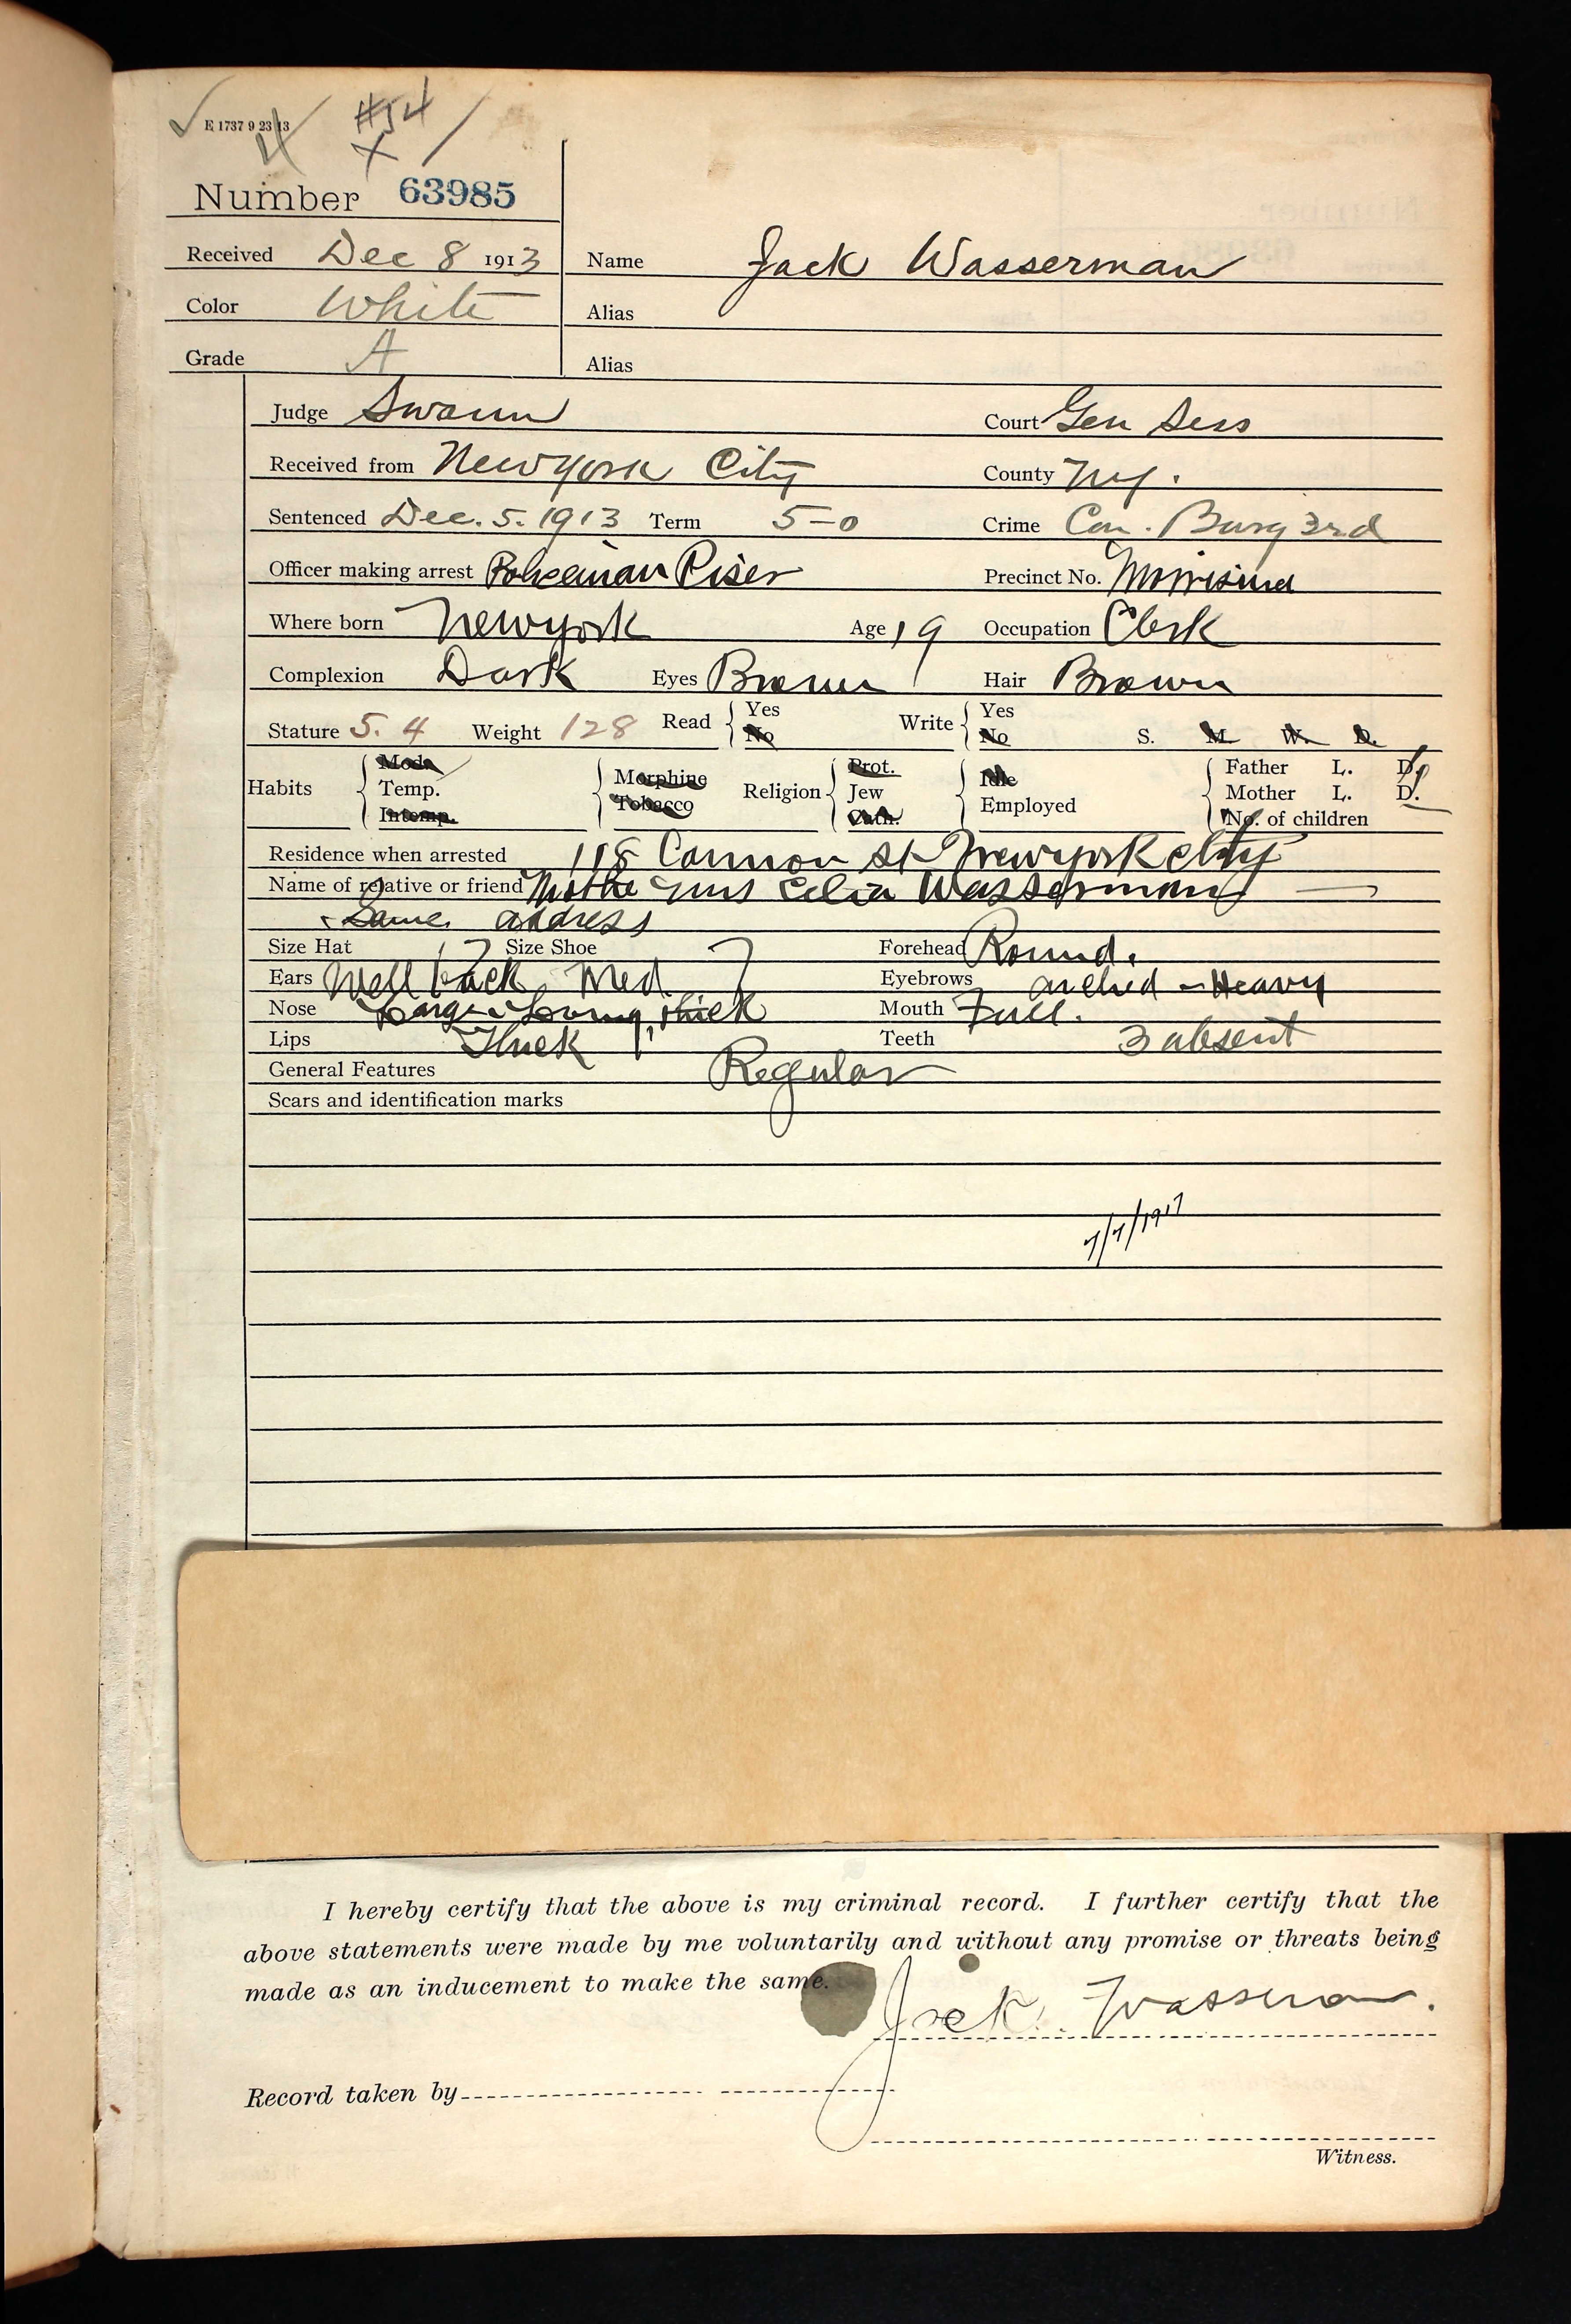 E 1737 9 23 13
#54
Number 63985
Received Dec 8 1913 Name Jack Wasserman
Color White Alias
Grade A Alias
Judge Swann Court Gen Sess
Received from New York City County N.Y.
Sentenced Dec. 5. 1913 Term 5-0 Crime Con. Burg 3rd
Officer making arrest Policeman Piser Precinct No. Morrisina
Where born New York Age 19 Occupation Clerk
Complexion Dark Eyes Brown Hair Brown
Stature 5. 4 Weight 128 Read Yes No Write Yes No S. M. W. D.
Habits Mode Temp. Intemp. Morphine Tobacco Religion Prot. Jew Cath. Idle Employed Father L. D. Mother L. D. No. of children
Residence when arrested 118 Cannon St New York City
Name of relative or friend Mother Mrs Celia Wasserman
Same address
Size Hat 7 Size Shoe 7 Forehead Round.
Ears Well back Med. Eyebrows arched - Heavy
Nose Large & Long, thick Mouth Full.
Lips Thick Teeth 3 absent
General Features Regular
Scars and identification marks
7/7/1917
I hereby certify that the above is my criminal record. I further certify that the
above statements were made by me voluntarily and without any promise or threats being
made as an inducement to make the same.
Jack Wasserman.
Record taken by
Witness.